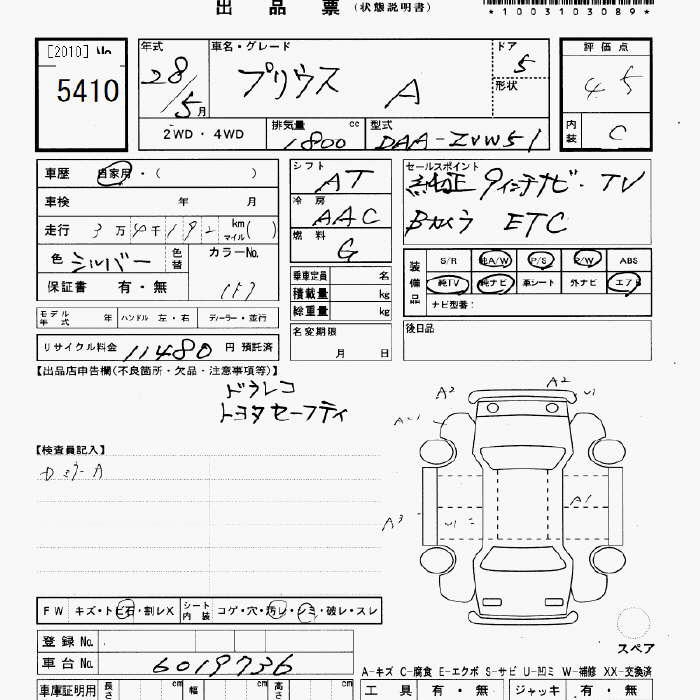 出品票 (状態説明書)
*1003103089*
[2010] No
5410
年式 28/5月
車名・グレード プリウス A
ドア 5
形状
評価点 4 5
内装 C
2WD・4WD
排気量 1800 cc
型式 DAA-ZVW51
車歴 自家用・( )
シフト AT
セールスポイント 純正9インチナビ・TV
Bカメラ ETC
車検 年 月
冷房 AAC
走行 3万4千192 km マイル( )
燃料 G
色 シルバー 色替
カラーNo. 1F7
保証書 有・無
乗車定員 名
積載量 kg
総重量 kg
装備品 S/R 純A/W P/S P/W ABS
純TV 純ナビ 革シート 外ナビ エアB
ナビ型番:
モデル年式 年 ハンドル 左・右 ディーラー・並行
名変期限 月 日
後日品
リサイクル料金 11480 円 預託済
【出品店申告欄(不良箇所・欠品・注意事項等)】
ドラレコ
トヨタセーフティ
A2 A2 U1
A-1
【検査員記入】
DミラーA
A1
A3 U1
FW キズ・トビ石・割レX シート内装 コゲ・穴・汚レ・シミ・破レ・スレ
スペア
登録 No.
車台 No. 6019736
A-キズ C-腐食 E-エクボ S-サビ U-凹ミ W-補修 XX-交換済
車庫証明用 長さ cm 幅 cm 高さ cm
工具 有・無 ジャッキ 有・無